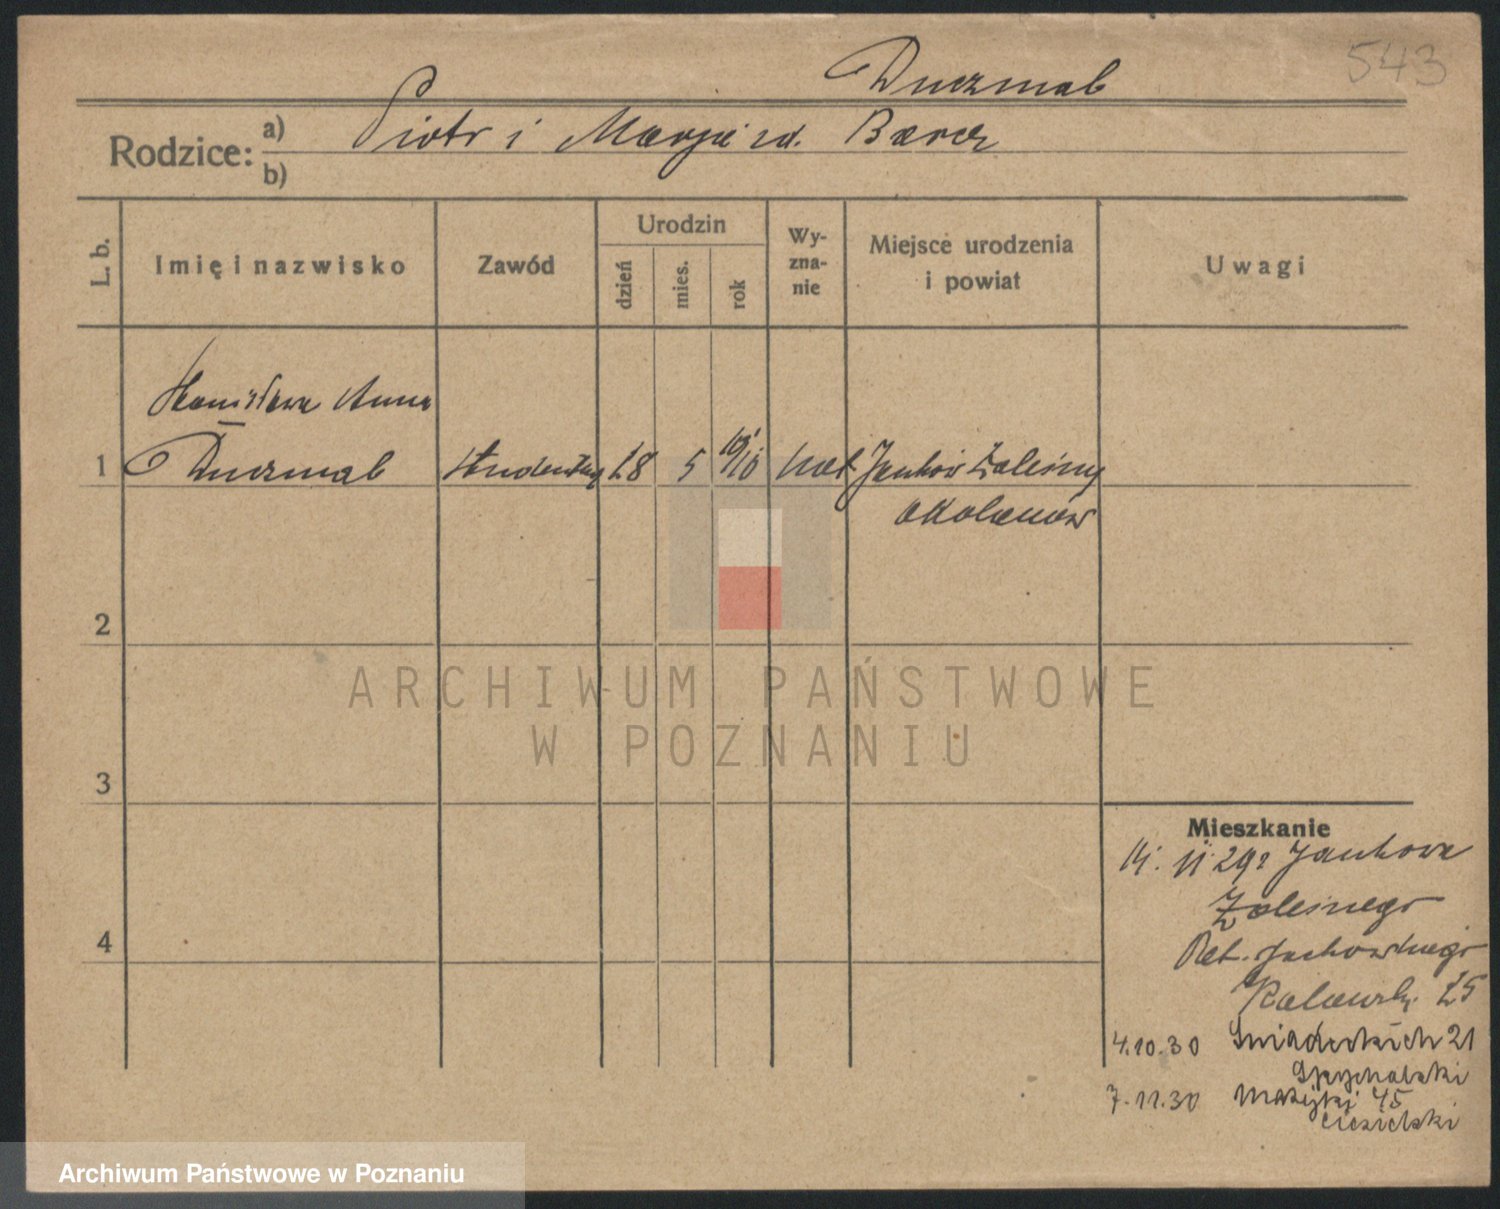 543
Duczmal
Rodzice: a) Piotr i Marja zd. Barcz
b)
L. b.
Imię i nazwisko
Zawód
Urodzin
dzień
mies.
rok
Wy-
zna-
nie
Miejsce urodzenia
i powiat
Uwagi
Stanisława Anna
1 Duczmal studentka 28 5 1910 kat. Janków Zaleśny
Odolanów
2
ARCHIWUM PAŃSTWOWE
W POZNANIU
3
Mieszkanie
11. 29r Jankowa
Zaleśnego
4
Rat. 25
4.10.30 Śniadeckich 21
Spychalski
7.11.30 Matejki 45
Ciesielski
Archiwum Państwowe w Poznaniu